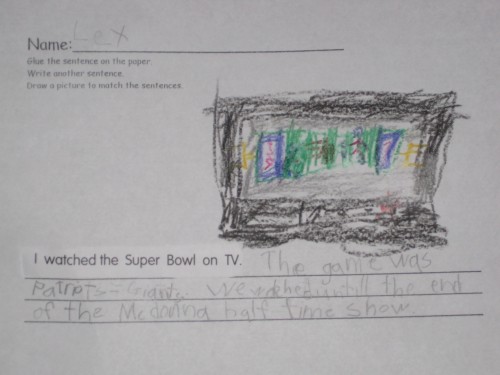 Name: Lex
Glue the sentence on the paper.
Write another sentence.
Draw a picture to match the sentences.
I watched the Super Bowl on TV. The game was
Patriots - Giants. We watched untill the end
of the Madonna half time show.